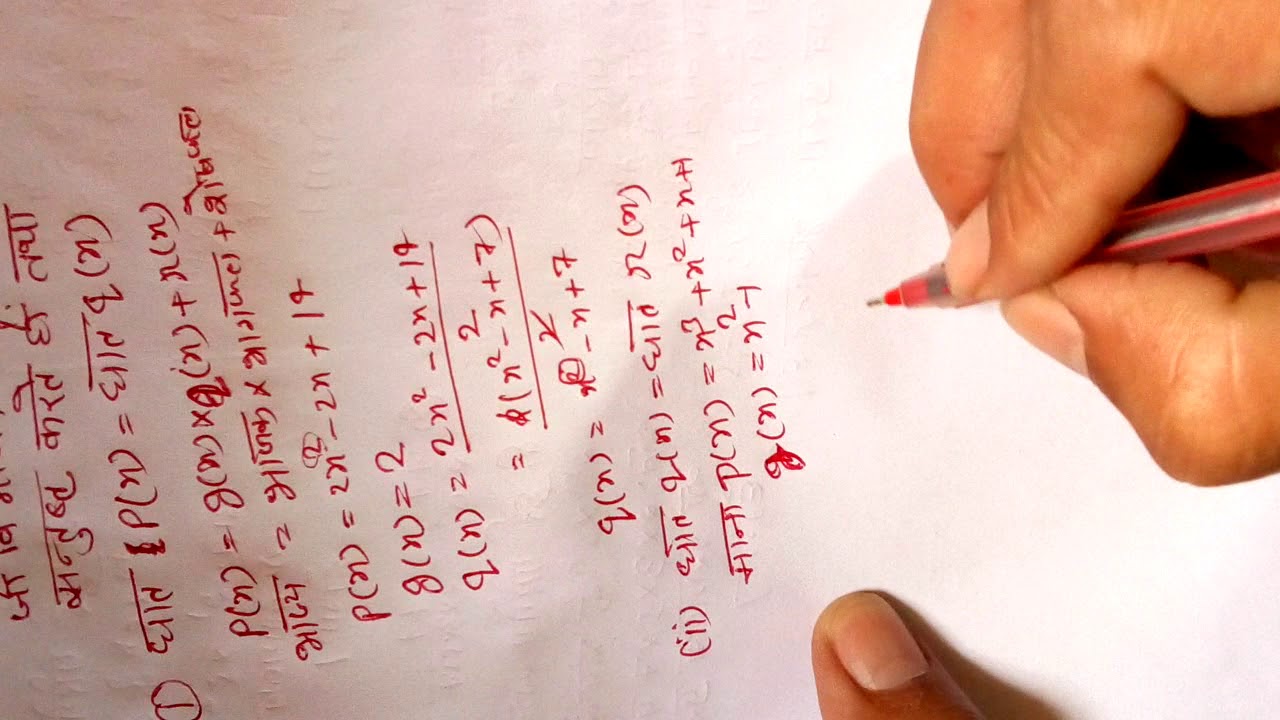 सन्तुष्ट करते हों तथा
① घात p(x) = घात q(x)
p(x) = g(x) × q(x) + r(x)
भाज्य = भाजक × भागफल + शेषफल
p(x) = 2x² - 2x + 14
g(x) = 2
q(x) = 2x² - 2x + 14 / 2
= 2(x² - x + 7) / 2
q(x) = x² - x + 7
(ii) घात q(x) = घात r(x)
माना p(x) = x³ + x² + x + 1
g(x) = x² - 1